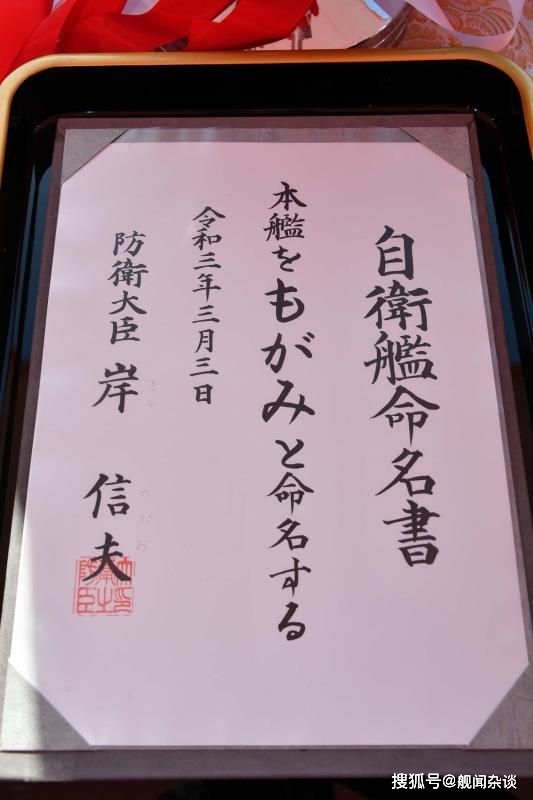 自衛艦命名書
本艦をもがみと命名する
令和三年三月三日
防衛大臣 岸 信夫
きし のぶお
搜狐号@舰闻杂谈